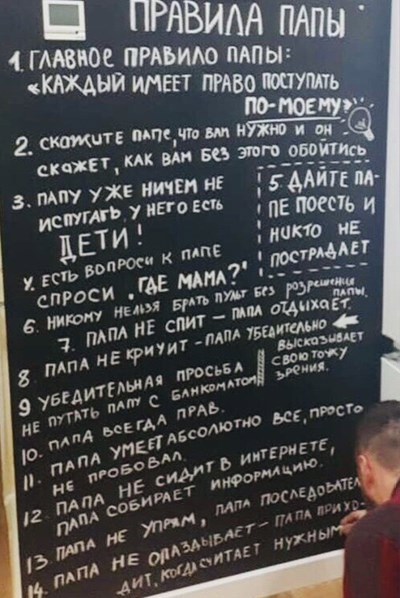 ПРАВИЛА ПАПЫ
1. ГЛАВНОЕ ПРАВИЛО ПАПЫ:
«КАЖДЫЙ ИМЕЕТ ПРАВО ПОСТУПАТЬ
ПО-МОЕМУ»
2. СКАЖИТЕ ПАПЕ, ЧТО ВАМ НУЖНО И ОН
СКАЖЕТ, КАК ВАМ БЕЗ ЭТОГО ОБОЙТИСЬ
3. ПАПУ УЖЕ НИЧЕМ НЕ
ИСПУГАТЬ, У НЕГО ЕСТЬ
ДЕТИ!
5. ДАЙТЕ ПА-
ПЕ ПОЕСТЬ И
НИКТО НЕ
ПОСТРАДАЕТ
4. ЕСТЬ ВОПРОСЫ К ПАПЕ
СПРОСИ „ГДЕ МАМА?"
6. НИКОМУ НЕЛЬЗЯ БРАТЬ ПУЛЬТ БЕЗ РАЗРЕШЕНИЯ
ПАПЫ.
7. ПАПА НЕ СПИТ – ПАПА ОТДЫХАЕТ.
8 ПАПА НЕ КРИЧИТ – ПАПА УБЕДИТЕЛЬНО
ВЫСКАЗЫВАЕТ
СВОЮ ТОЧКУ
ЗРЕНИЯ.
9 УБЕДИТЕЛЬНАЯ ПРОСЬБА
НЕ ПУТАТЬ ПАПУ С БАНКОМАТОМ
10. ПАПА ВСЕГДА ПРАВ.
11. ПАПА УМЕЕТ АБСОЛЮТНО ВСЕ, ПРОСТО
НЕ ПРОБОВАЛ.
12. ПАПА НЕ СИДИТ В ИНТЕРНЕТЕ,
ПАПА СОБИРАЕТ ИНФОРМАЦИЮ.
13 ПАПА НЕ УПРЯМ, ПАПА ПОСЛЕДОВАТЕЛ
14. ПАПА НЕ ОПАЗДЫВАЕТ – ПАПА ПРИХО-
ДИТ, КОГДА СЧИТАЕТ НУЖНЫМ